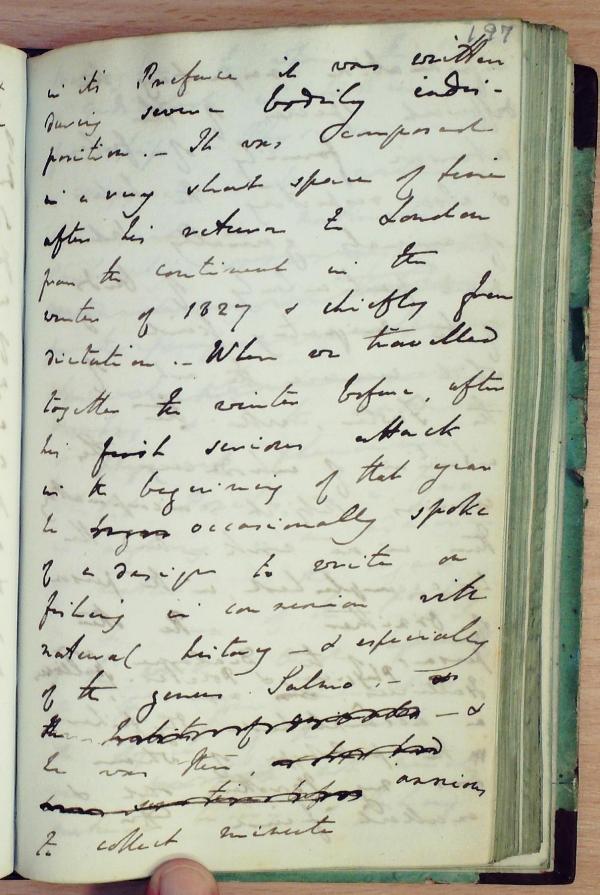 197
in its Preface it was written
during severe bodily indis-
position. - It was composed
in a very short space of time
after his return to London
from the continent in the
winter of 1827 & chiefly from
dictation. - When we travelled
together the winter before, after
his first serious attack
in the beginning of that year
he began occasionally spoke
of a design to write on
fishing in connexion with
natural history - & especially
of the genus Salmo. -
the habits of - &
he was then,
anxious
to collect minute